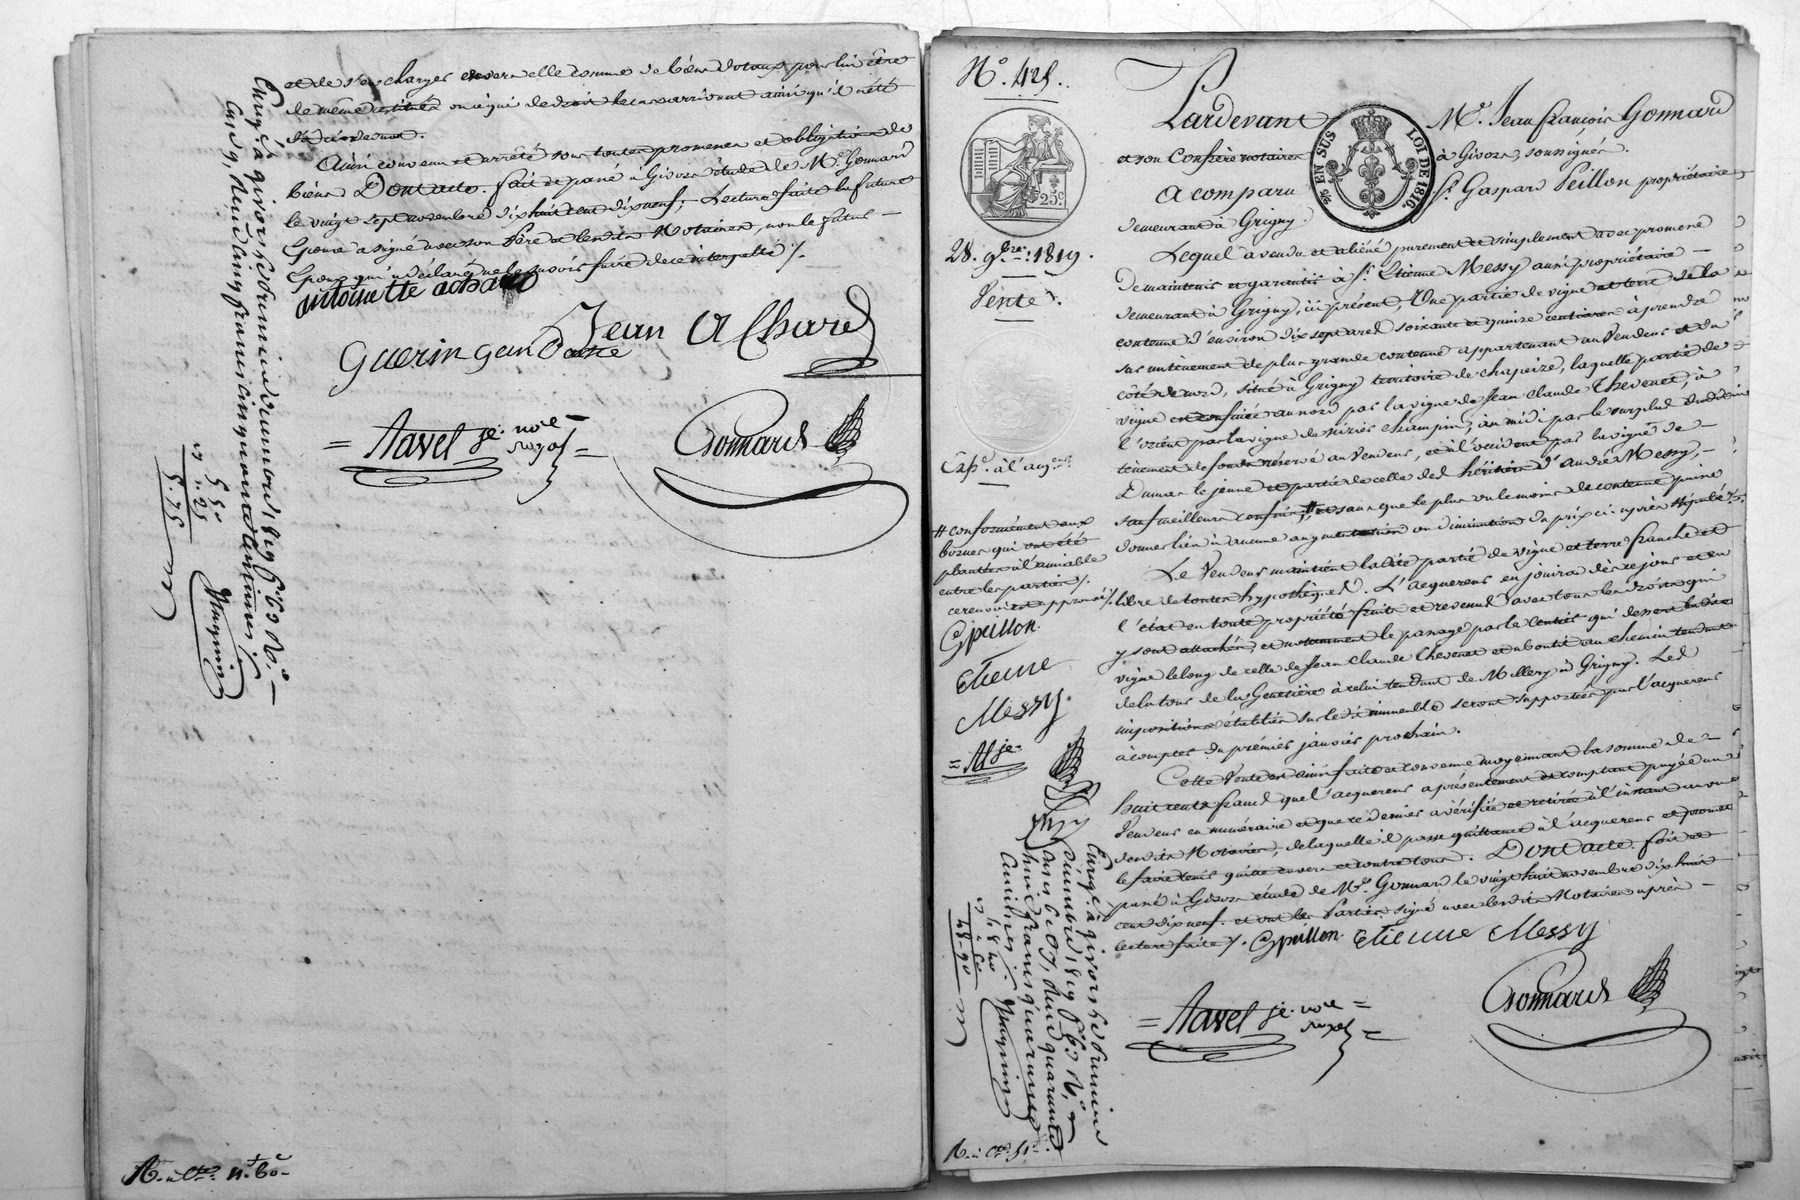 et de s'en charger envers elle comme de biens dotaux pour lui être
de même restitués ou à qui de droit le cas arrivant ainsi qu'il a été
dit ci-dessus.
Ainsi convenu et arrêté sous toutes promesses et obligations de
biens Dont acte. fait et passé à Givors étude de Me. Gonnard
le vingt sept novembre dix huit cent dix neuf; Lecture faite la future
Epouse a signé avec son Père et lesdits Notaires, non le futur
Epoux qui a déclaré ne le savoir faire de ce interpellé /.
antoinette achard
Jean Achard
Guerin Jean
Navel je. nore
royal
Gonnard
Enreg.é à givors le premier
Reçu cinq francs cinquante centimes
5 50
25
5. 75
R. à Cte. 11.f 60c
N°. 425.
25c
28. 9bre. 1819.
Vente.
Exp.é à l'acqr
# conformément aux
bornes qui ont été
plantées à l'amiable
entre les parties /.
ce renvoi est approuvé /.
Gpeillon.
Etienne
Messy.
N je.
EN SUS
LOI DE 1816.
Pardevant Me. Jean françois Gonnard
et son Confrère notaires à Givors, soussignés.
A comparu Sr. Gaspard Peillon propriétaire
demeurant à Grigny.
Lequel a vendu et aliéné purement et simplement avec promesse
de maintenir et garantir à Sr. Etienne Messy aussi propriétaire
demeurant à Grigny, ici présent, Une partie de vigne et terre de la
contenue d'environ dix sept ares soixante et quinze centiares à prendre
sur un tènement de plus grande contenue appartenant au Vendeur et du
côté de nord, situé à Grigny territoire de chapeize, laquelle partie de
vigne est confinée au nord par la vigne de Jean Claude Thevenet, à
l'orient par la vigne du sieur Champin, au midi par le surplus dudit
tènement de fonds réservé au Vendeur, et à l'occident par la vigne de
Dumas le jeune et partie de celle des héritiers d'André Messy,
sauf meilleurs confins, # et sans que le plus ou le moins de contenue puisse
donner lieu à aucune augmentation ou diminution du prix ci-après stipulé /.
Le Vendeur maintient ladite partie de vigne et terre franche et
libre de toutes hypothèques. L'acquereur en jouira dès ce jour et en
l'état en toute propriété fruits et revenus avec tous les droits qui
y sont attachés, et notamment le passage par le sentier qui dessert ladite
vigne le long de celle de Jean Claude Thevenet et aboutit au chemin tendant
de la tour de la Genetière à celui tendant de Millery à Grigny. Les
impositions établies sur ledit immeuble seront supportées par l'acquereur
à compter du premier janvier prochain.
Cette Vente est ainsi faite et convenue moyennant la somme de
huit cents francs que l'acquereur a présentement et comptant payée au
Vendeur en numéraire et que ce dernier a vérifiée et retirée à l'instant au vu
desdits Notaires, de laquelle il passe quittance à l'acquereur et promet
le faire tenir quitte envers et contre tous. Dont acte. fait et
passé à Givors étude de Me. Gonnard le vingt huit novembre dix huit
cent dix neuf. et ont les Parties signé avec lesdits Notaires après
lecture faite /. Gpeillon. Etienne Messy
Navel je. nore
royal
Gonnard
Enreg.é à givors le premier
Reçu quarante
huit francs quarante
centimes
48 40
48-90